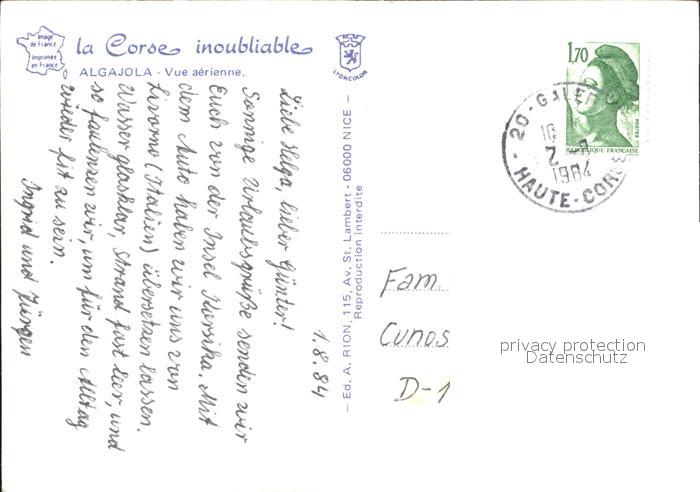 Image
de France
Imprimée
en France
la Corse inoubliable
ALGAJOLA - Vue aérienne.
LYONCOLOR
1.8.84
Liebe Helga, lieber Günter!
Sonnige Urlaubsgrüße senden wir
Euch von der Insel Korsika. Mit
dem Auto haben wir uns von
Livorno (Italien) übersetzen lassen.
Wasser glasklar, Strand fast leer, und
so faulenzen wir, um für den Alltag
wieder fit zu sein.
Ingrid und Jürgen
— Ed. A. RION, 115, Av. St. Lambert - 06000 NICE —
Reproduction interdite
1,70
POSTES
REPUBLIQUE FRANÇAISE
1984
HAUTE-CORSE
Fam.
Cunos
D-1
privacy protection
Datenschutz